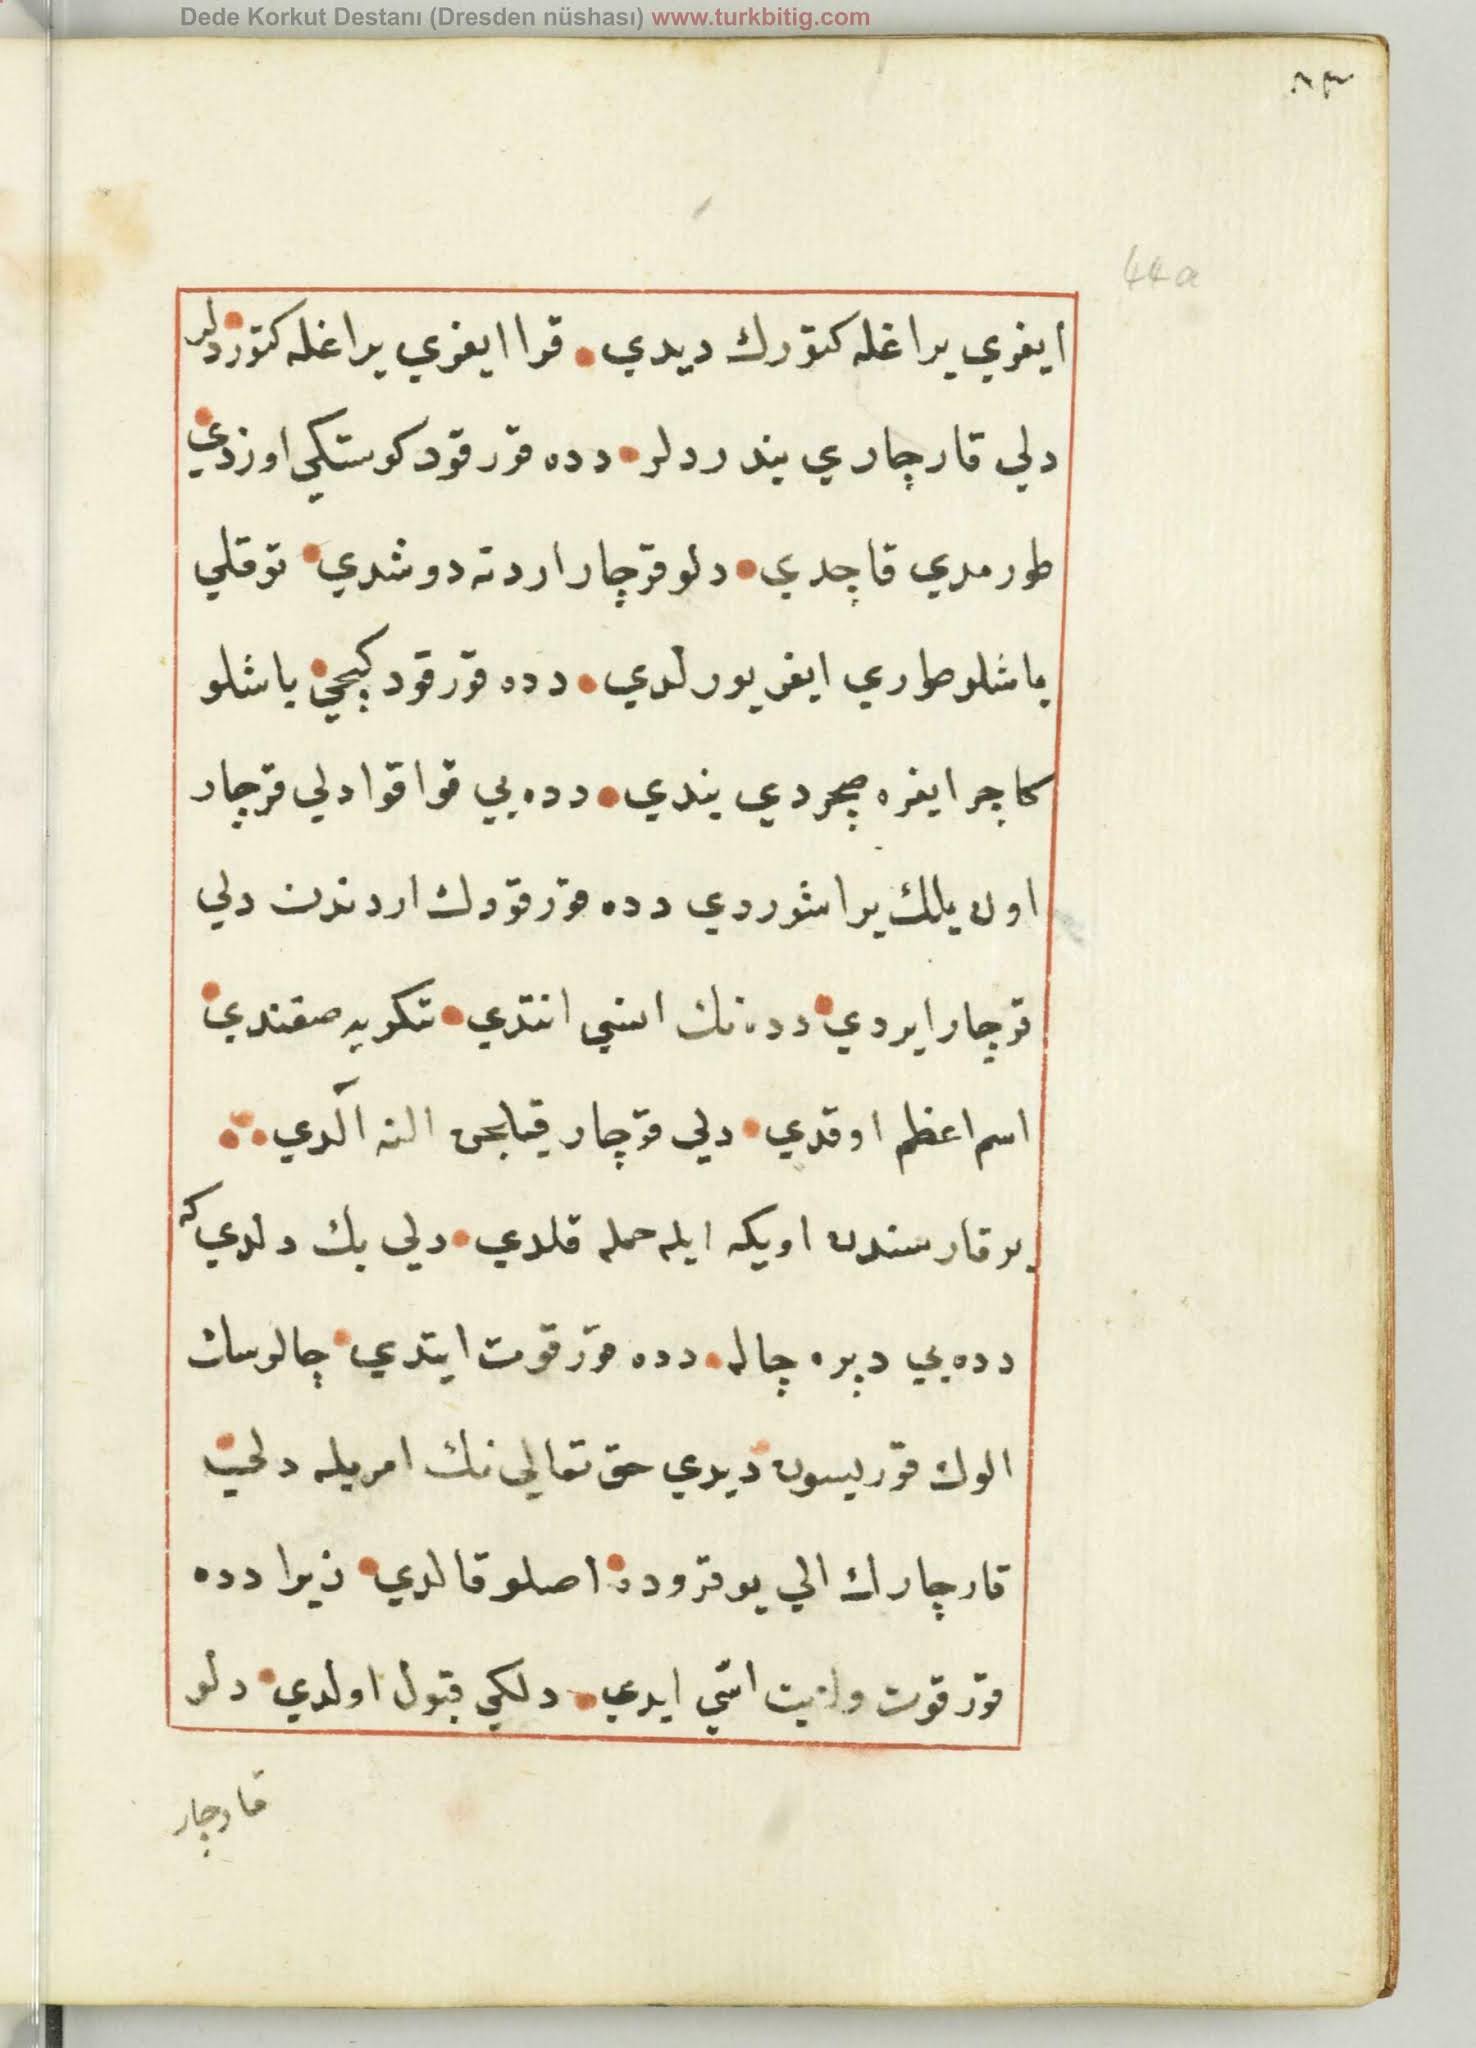 Dede Korkut Destanı (Dresden nüshası) www.turkbitig.com
٨٣
44a
ايغري يراغله كتورك ديدي قرا ايغري يراغله كتوردلر
دلي قارچاري بندردلر دده قورقود كوستكي اوزدي
طورمدي قاچدي دلو قرچار اردنه دوشدي توقلي
باشلو طوري ايغر يورلدي دده قورقود كيچي باشلو
كاچر ايغره صچردي بندي دده يي قوا قوا دلي قرچار
اون يلك ير اشوردي دده قورقودك اردندن دلي
قرچار ايردي دده نك انتدي تنكريه صغندي
اسم اعظم اوقدي دلي قرچار قيلجن النه آلدي
يوقارسندن اويكه ايله حمله قلدي دلي بك دلدي كه
دده يي دپره چاله دده قورقوت ايتدي چالرسك
الوك قوريسون ديدي حق تعالي نك امريله دلي
قارچارك الي يوقروده اصلو قالدي زيرا دده
قورقوت ولايت اسي ايدي دلكي قبول اولدي دلو
قارچار